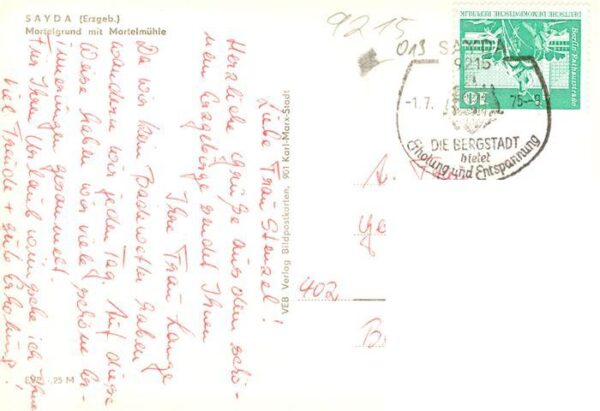 SAYDA (Erzgeb.)
Mortelgrund mit Mortelmühle
9215
013 SAYDA
9215
-1.7. 75--9
DIE BERGSTADT
bietet
Erholung und Entspannung
DEUTSCHE DEMOKRATISCHE REPUBLIK
Berlin · Rathausstraße
Liebe Frau Stenzel!
Herzliche Grüße aus dem schö-
nen Erzgebirge sendet Ihnen
Ihre Frau Lange
Da wir kein Badewetter haben
wandern wir jeden Tag. Auf diese
Weise haben wir viele schöne Er-
innerungen gesammelt.
Für Ihren Urlaub wünsche ich Ihnen
viel Freude + gute Erholung!
VEB Verlag Bildpostkarten, 901 Karl-Marx-Stadt
402
B
EVP -,25 M